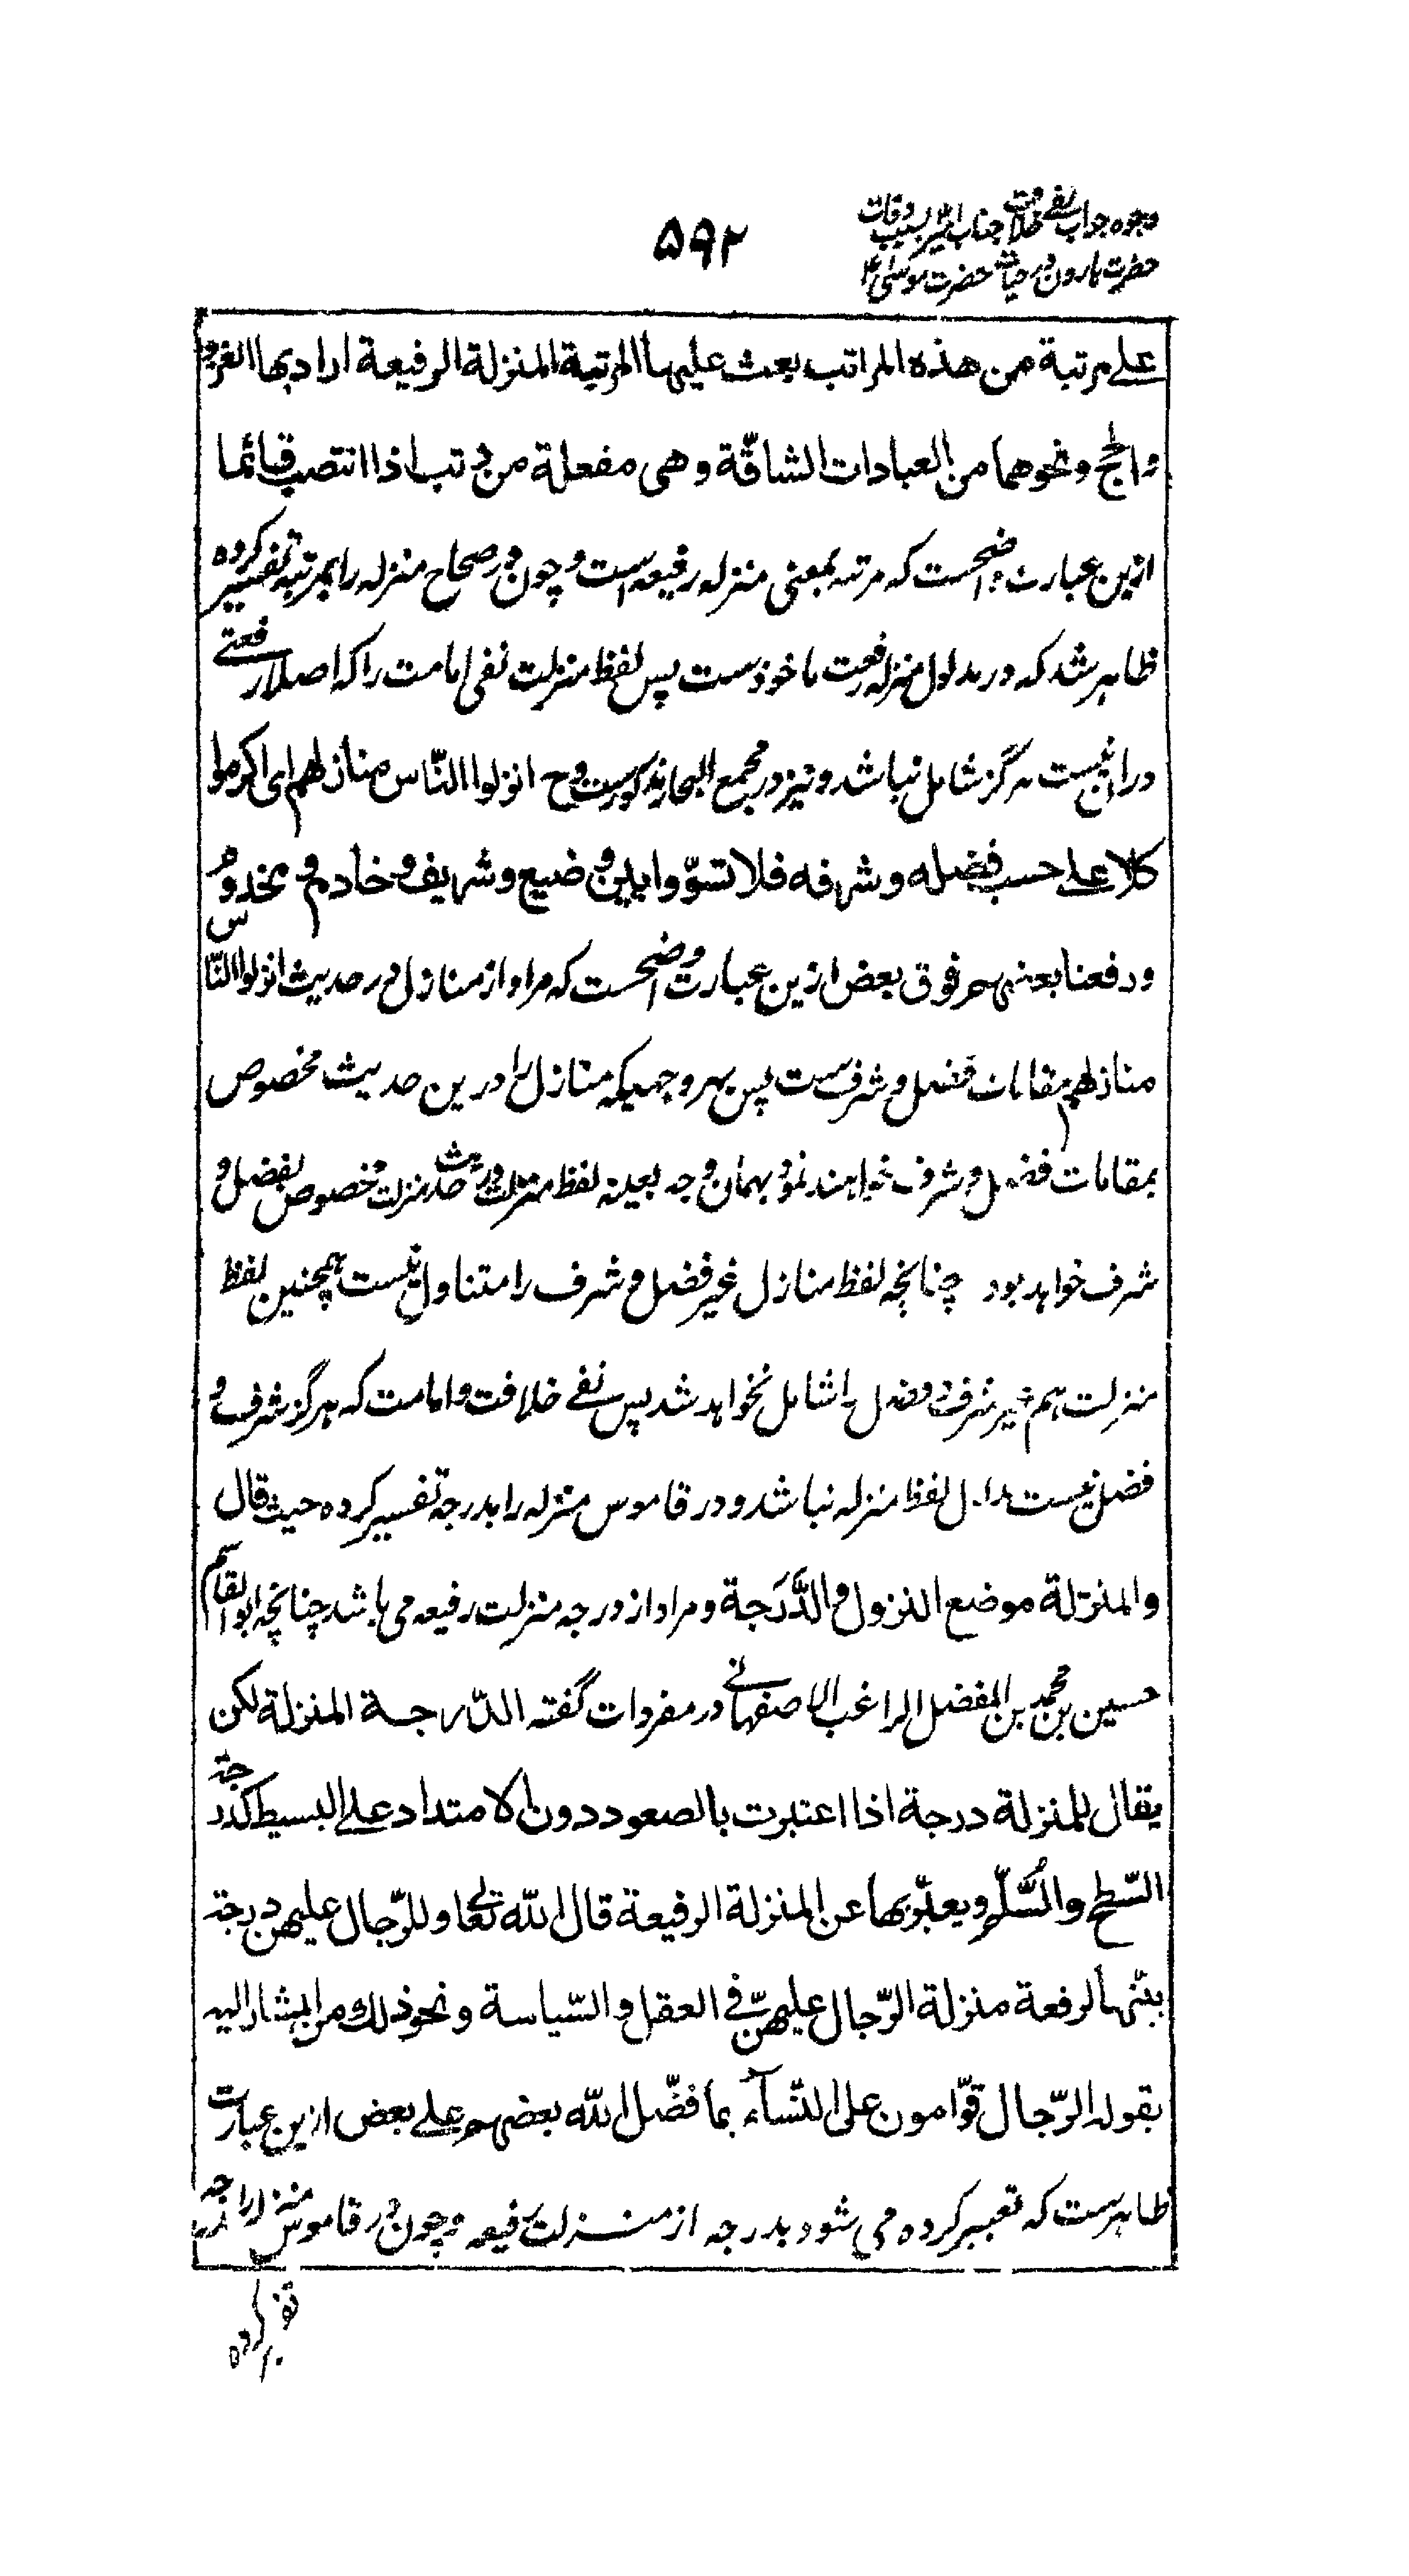 وجوه جواب نفی خلافت جناب امیر بسبب وفات
حضرت هارون در حیات حضرت موسی ع
۵۹۲
علی مرتبة من هذه المراتب بعث علیها المرتبة المنزلة الرفیعة اراد بها الغزو
والحج ونحوهما من العبادات الشاقّة وهی مفعلة من رتب اذا انتصب قائما
ازین عبارت واضحست که مرتبه بمعنی منزله رفیعه است وچون در صحاح منزله را بمرتبه تفسیر کرده
ظاهر شد که در مدلول منزله رفعت ماخوذست پس لفظ منزلت نفی امامت را که اصلا رفعتی
دران نیست هرگز شامل نباشد ونیز در مجمع البحار مذکورست وح انزلوا النّاس منازلهم ای اکرموا
کلا علی حسب فضله وشرفه فلا تسوّوا بین وضیع وشریف وخادم ومخدوم
ورفعنا بعضهم فوق بعض ازین عبارت واضحست که مراد از منازل در حدیث انزلوا النّاس
منازلهم مقامات فضل وشرفست پس بهر وجهیکه منازل را درین حدیث مخصوص
بمقامات فضل وشرف خواهند نمود بهمان وجه بعینه لفظ منزلت در حدیث منزلت مخصوص بفضل و
شرف خواهد بود چنانچه لفظ منازل غیر فضل وشرف را متناول نیست همچنین لفظ
منزلت هم غیر شرف وفضل را شامل نخواهد شد پس نفی خلافت وامامت که هرگز شرف و
فضل نیست مدلول لفظ منزله نباشد ودر قاموس منزله را بدرجه تفسیر کرده حیث قال
والمنزلة موضع النزول والدَّرَجة ومراد از درجه منزلت رفیعه می باشد چنانچه ابوالقاسم
حسین بن محمد بن المفضل الراغب الاصفهانی در مفردات گفته الدّرجة المنزلة لکن
یقال للمنزلة درجة اذا اعتبرت بالصعود دون الامتداد علی البسیط کدرجة
السّطح والسُّلّم ویعبّر بها عن المنزلة الرفیعة قال اللّه تعالی وللرّجال علیهن درجة
بینّها لرفعة منزلة الرّجال علیهنّ فی العقل والسّیاسة ونحو ذلك من المشار الیه
بقوله الرّجال قوّامون علی النّسآء بما فضّل اللّه بعضهم علی بعض ازین عبارت
ظاهرست که تعبیر کرده می شود بدرجه از منزلت رفیعه وچون در قاموس منزله را بدرجه
تفسیر کرده